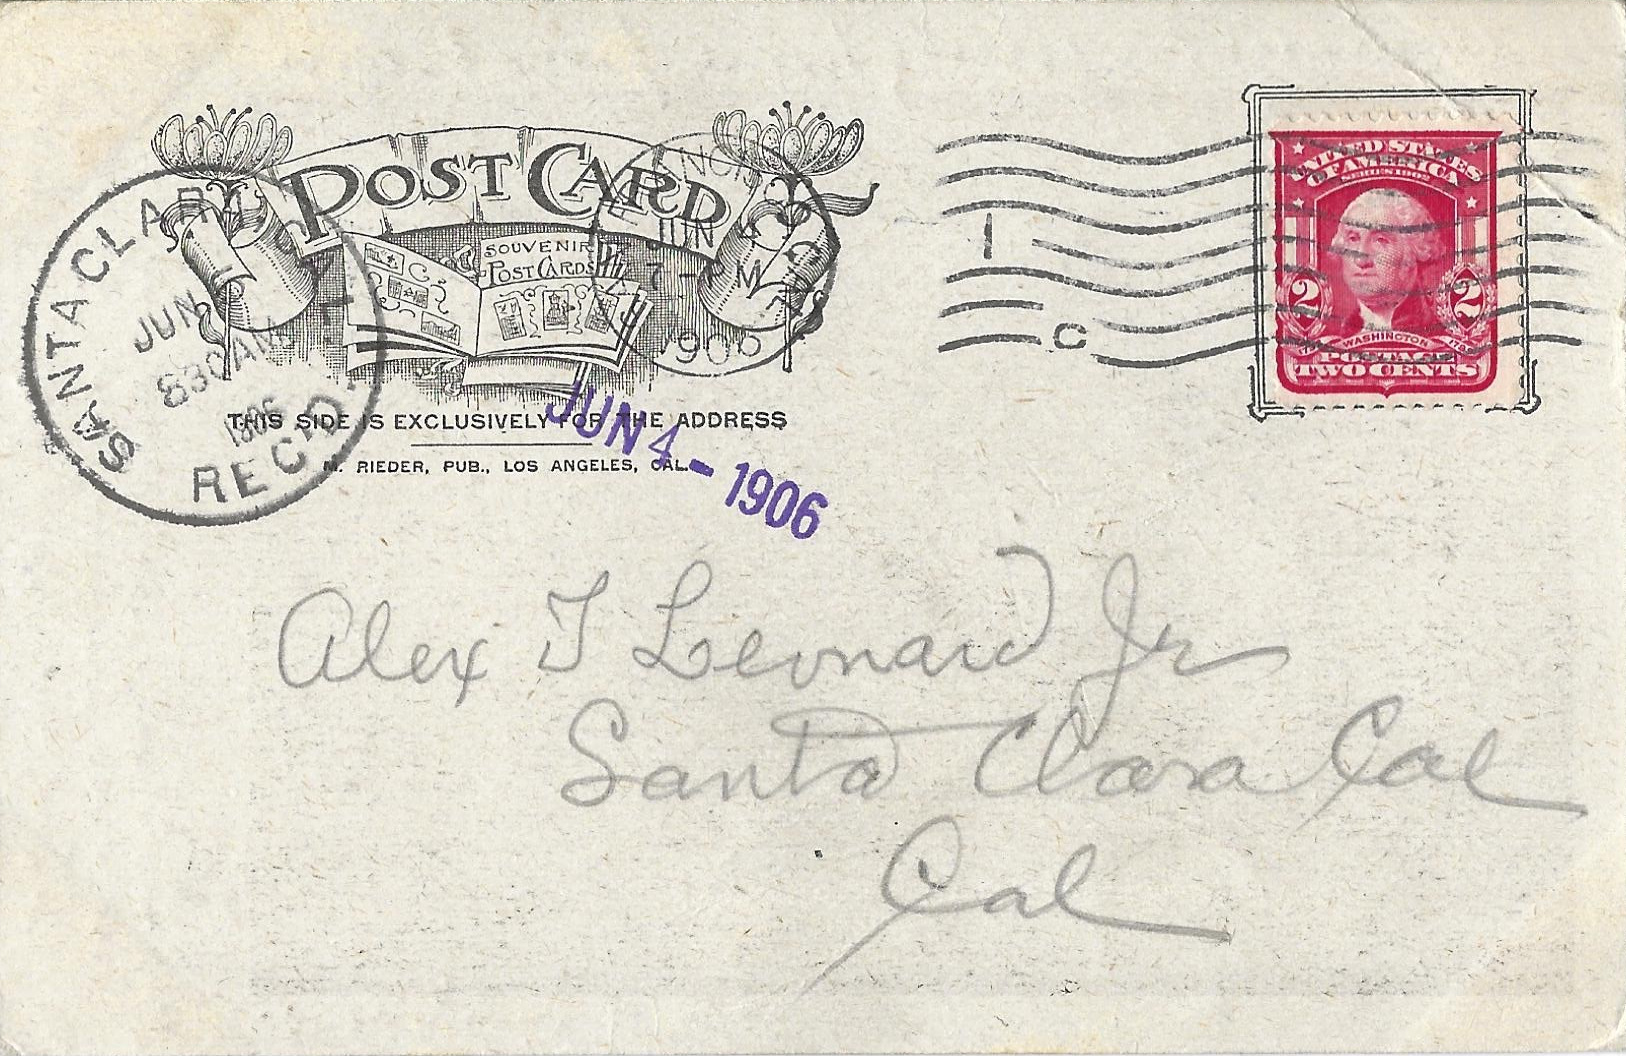 POST CARD
SOUVENIR
POST CARDS
THIS SIDE IS EXCLUSIVELY FOR THE ADDRESS
M. RIEDER, PUB., LOS ANGELES, CAL.
SANTA CLARA
JUN
830AM
1906
REC'D.
JUN
7- PM
1906
JUN 4 - 1906
1
C
UNITED STATES
OF AMERICA
SERIES 1902
2 2
WASHINGTON
POSTAGE
TWO CENTS
Alex T Leonard Jr
Santa Clara Cal
Cal